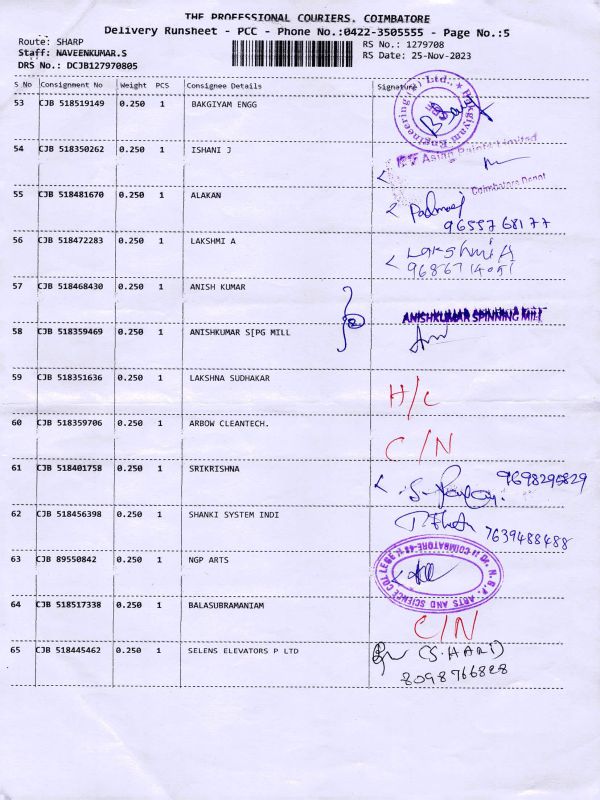 THE PROFESSIONAL COURIERS. COIMBATORE
Delivery Runsheet - PCC - Phone No.:0422-3505555 - Page No.:5
Route: SHARP
RS No.: 1279708
Staff: NAVEENKUMAR.S
RS Date: 25-Nov-2023
DRS No.: DCJB127970805
S No Consignment No Weight PCS Consignee Details Signature
53 CJB 518519149 0.250 1 BAKGIYAM ENGG
54 CJB 518350262 0.250 1 ISHANI J
Asian Paints Limited
Coimbatore Depot
55 CJB 518481670 0.250 1 ALAKAN
9655768177
56 CJB 518472283 0.250 1 LAKSHMI A Lakshmi A
9686714051
57 CJB 518468430 0.250 1 ANISH KUMAR
ANISHKUMAR SPINNING MILL
58 CJB 518359469 0.250 1 ANISHKUMAR S[PG MILL
59 CJB 518351636 0.250 1 LAKSHNA SUDHAKAR H/C
60 CJB 518359706 0.250 1 ARBOW CLEANTECH. C/N
61 CJB 518401758 0.250 1 SRIKRISHNA 9698295829
62 CJB 518456398 0.250 1 SHANKI SYSTEM INDI 7639488488
63 CJB 89550842 0.250 1 NGP ARTS
Dr. N.G.P. ARTS AND SCIENCE COLLEGE COIMBATORE-48
64 CJB 518517338 0.250 1 BALASUBRAMANIAM C/N
65 CJB 518445462 0.250 1 SELENS ELEVATORS P LTD (S.HARI)
8098766828